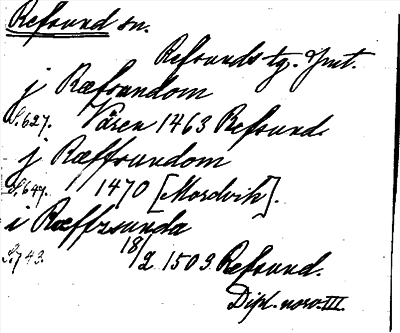 Refsund sn.
Refsunds tg. Jmt.
j Ræfsundom
S. 627. Våren 1463 Refsund.
j Ræffsundom
S. 647. 1470 [Mordvik].
i Ræffzsunda
S. 743. 18/2 1503. Refsund.
Dipl. norv. III.